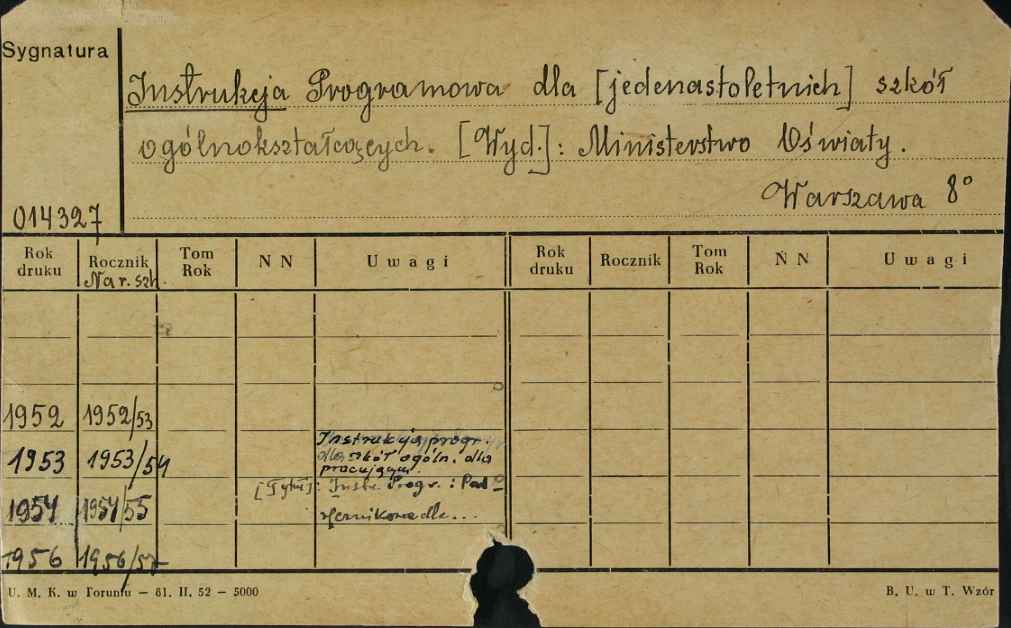 Sygnatura
Instrukcja Programowa dla [jedenastoletnich] szkół
ogólnokształcących. [Wyd.]: Ministerstwo Oświaty.
Warszawa 8°
014327
Rok druku Rocznik Tom Rok N N Uwagi Rok druku Rocznik Tom Rok N N Uwagi
Na r. szk.
1952 1952/53
Instrukcja progr.
1953 1953/54 dla szkół ogóln. dla
pracującym.
[Tytuł]: Instr. Progr. i Pod-
1954 1954/55 ręcznikowa dla...
1956 1956/57
U. M. K. w Toruniu — 61. II. 52 — 5000 B. U. w T. Wzór